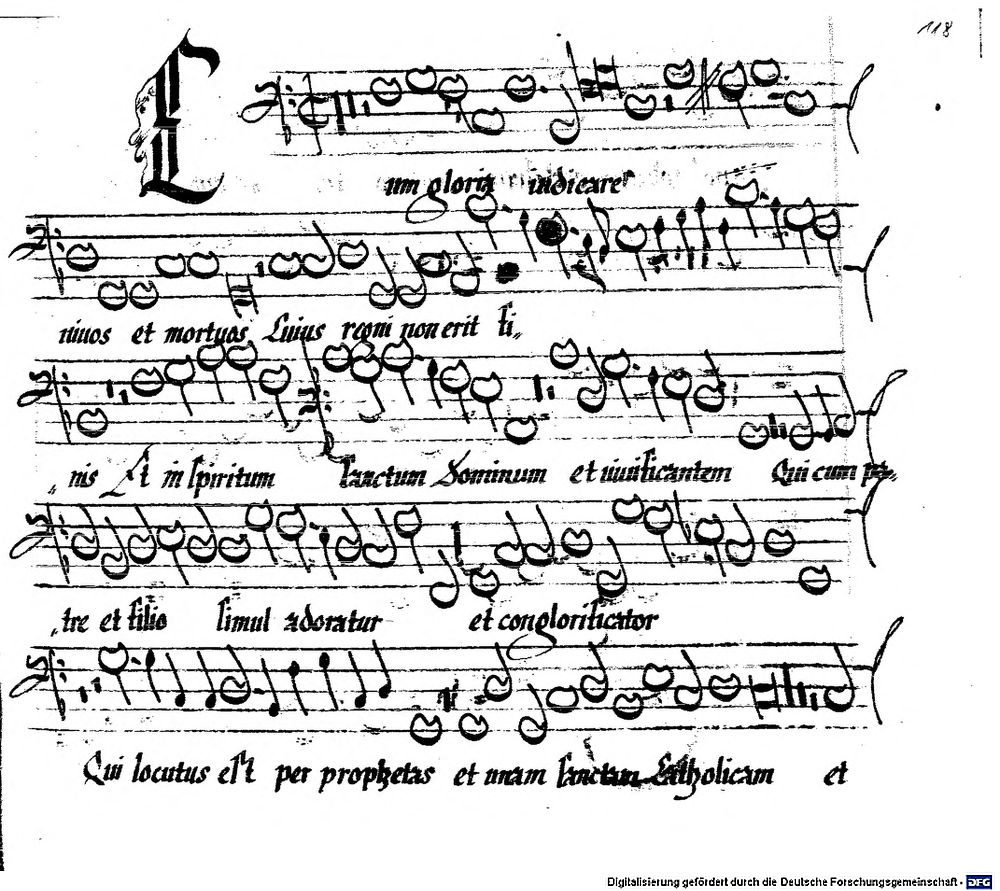 118
Cum gloria iudicare
viuos et mortuos Cuius regni non erit fi„
„nis Et in spiritum sanctum Dominum et viuificantem Qui cum pa„
„tre et filio simul adoratur et conglorificator
Qui locutus est per prophetas et unam sanctam Catholicam et
Digitalisierung gefördert durch die Deutsche Forschungsgemeinschaft - DFG